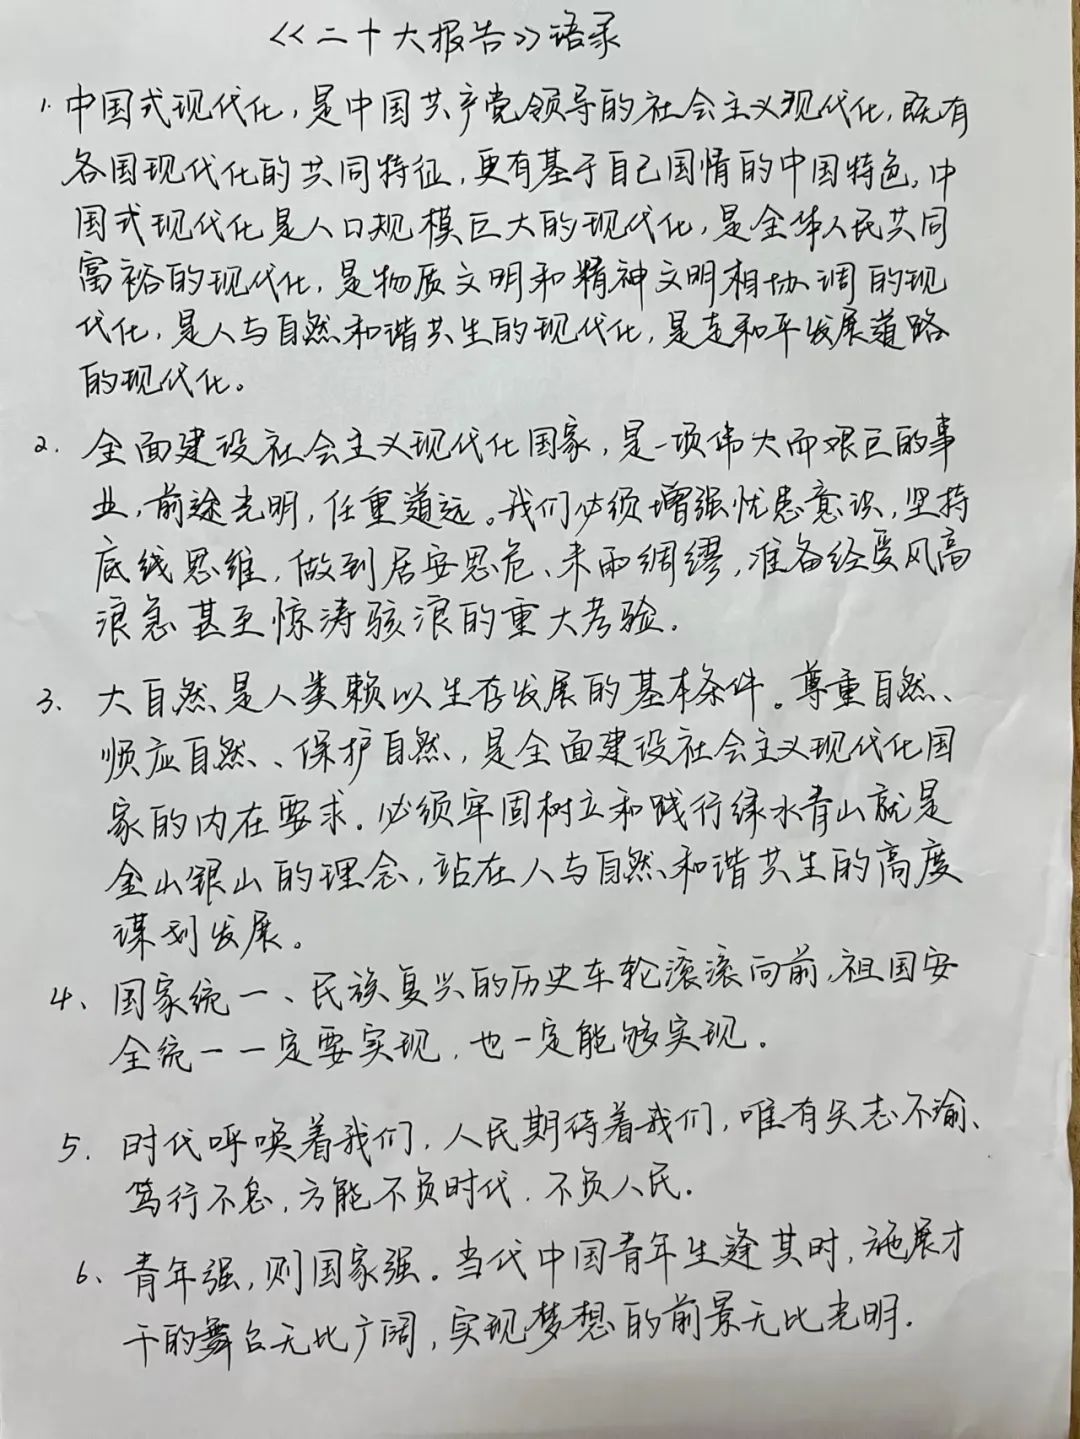 《二十大报告》语录
1. 中国式现代化,是中国共产党领导的社会主义现代化,既有
各国现代化的共同特征,更有基于自己国情的中国特色。中
国式现代化是人口规模巨大的现代化,是全体人民共同
富裕的现代化,是物质文明和精神文明相协调的现
代化,是人与自然和谐共生的现代化,是走和平发展道路
的现代化。
2. 全面建设社会主义现代化国家,是一项伟大而艰巨的事
业,前途光明,任重道远。我们必须增强忧患意识,坚持
底线思维,做到居安思危、未雨绸缪,准备经受风高
浪急甚至惊涛骇浪的重大考验.
3、大自然是人类赖以生存发展的基本条件。尊重自然、
顺应自然、保护自然,是全面建设社会主义现代化国
家的内在要求.必须牢固树立和践行绿水青山就是
金山银山的理念,站在人与自然和谐共生的高度
谋划发展。
4、国家统一、民族复兴的历史车轮滚滚向前,祖国安
全统一一定要实现,也一定能够实现.
5. 时代呼唤着我们,人民期待着我们,唯有矢志不渝、
笃行不怠,方能不负时代.不负人民.
6、青年强,则国家强.当代中国青年生逢其时,施展才
干的舞台无比广阔,实现梦想的前景无比光明.